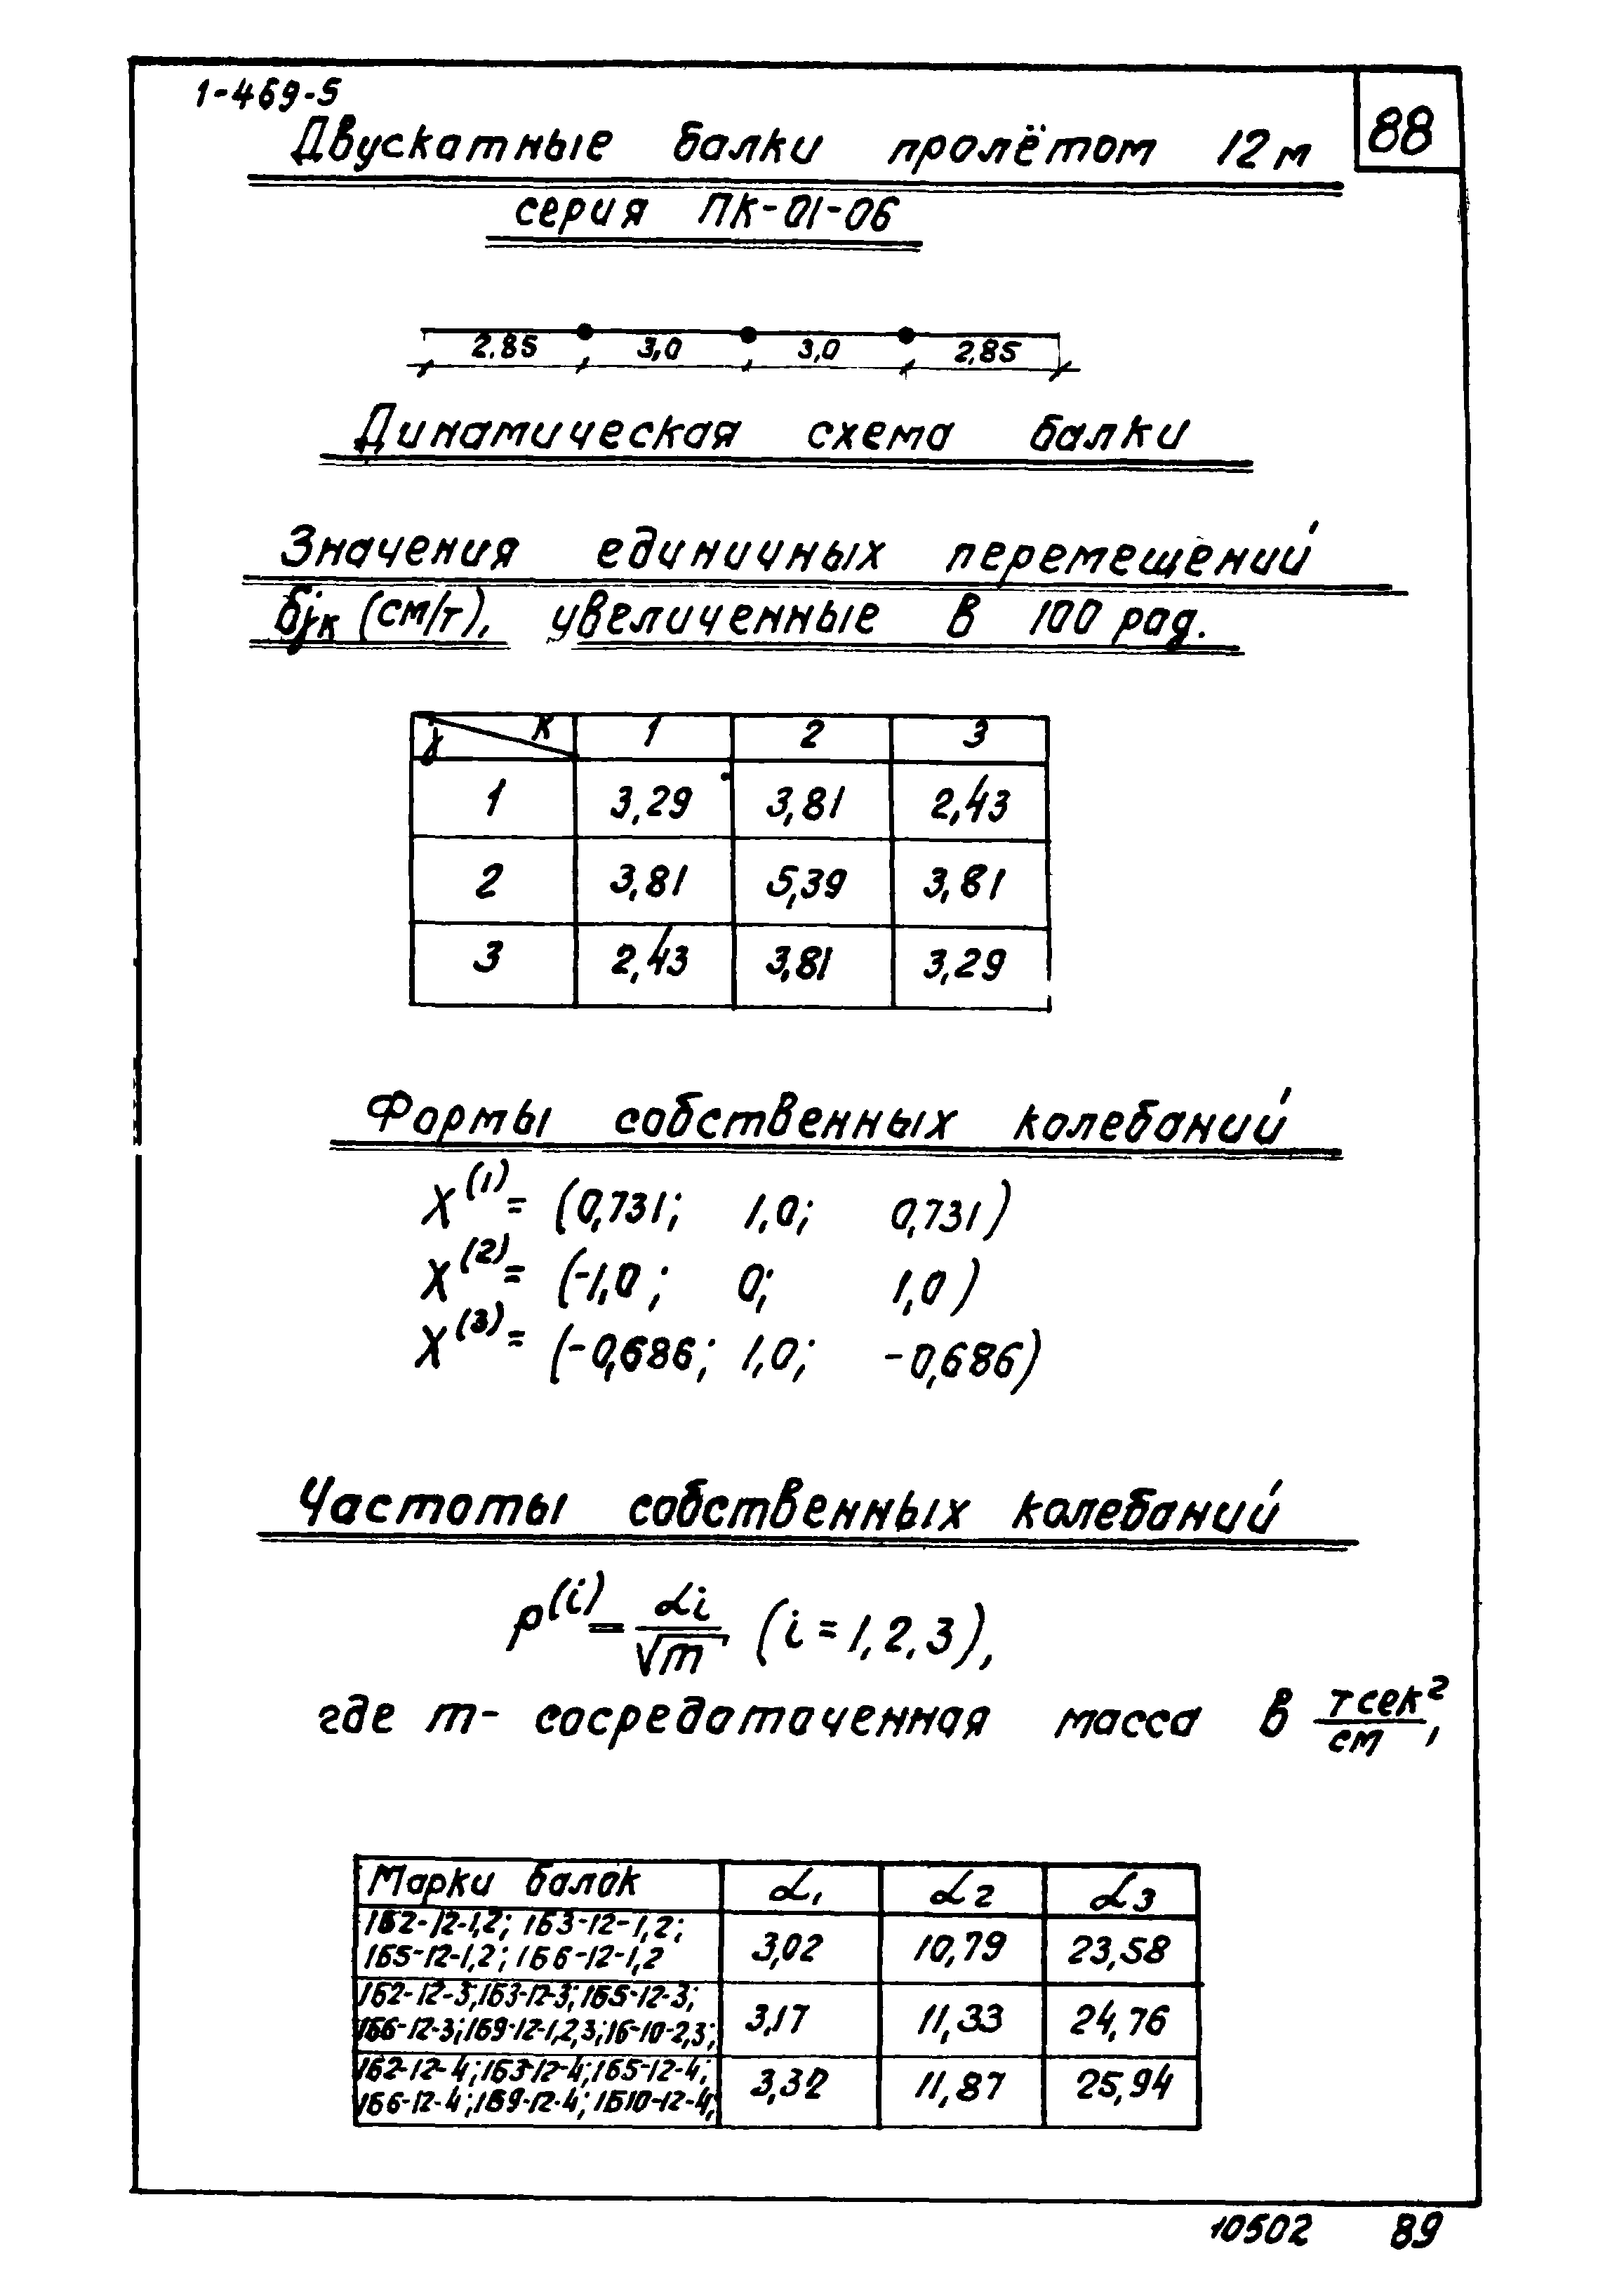 1-469-5
88
Двускатные балки пролётом 12м
серия ПК-01-06
2.85 3,0 3,0 2,85
Динамическая схема балки
Значения единичных перемещений
бjк (см/т), увеличенные в 100 рад.
j К 1 2 3
1 3,29 3,81 2,43
2 3,81 5,39 3,81
3 2,43 3,81 3,29
Формы собственных колебаний
X(1)= (0,731; 1,0; 0,731)
X(2)= (-1,0; 0; 1,0)
X(3)= (-0,686; 1,0; -0,686)
Частоты собственных колебаний
p(i) = αi/√m (i=1,2,3),
где m- сосредоточенная масса в тсек²/см,
Марки балок α1 α2 α3
1Б2-12-1,2; 1Б3-12-1,2;
1Б5-12-1,2; 1Б6-12-1,2 3,02 10,79 23,58
1Б2-12-3; 1Б3-12-3; 1Б5-12-3;
1Б6-12-3; 1Б9-12-1,2,3; 1Б-10-2,3; 3,17 11,33 24,76
1Б2-12-4; 1Б3-12-4; 1Б5-12-4;
1Б6-12-4; 1Б9-12-4; 1Б10-12-4; 3,32 11,87 25,94
10502 89